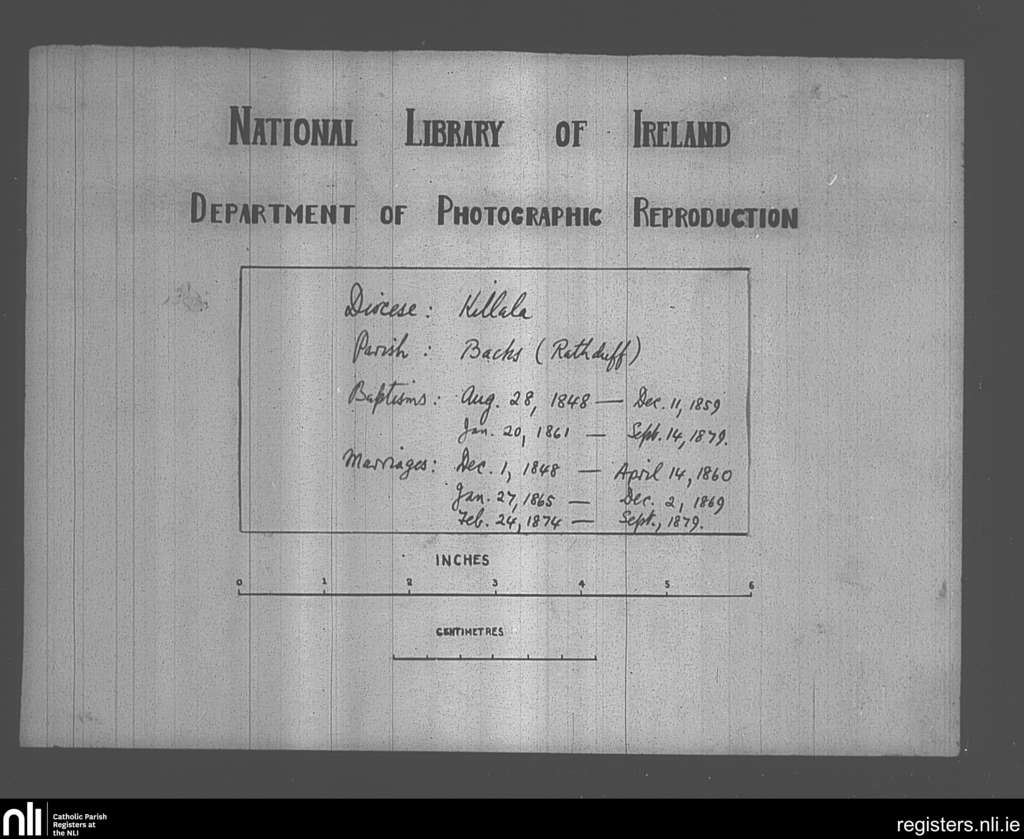 National Library of Ireland
Department of Photographic Reproduction
Diocese: Killala
Parish: Backs (Rathduff)
Baptisms: Aug. 28, 1848 — Dec. 11, 1859
Jan. 20, 1861 — Sept. 14, 1879.
Marriages: Dec. 1, 1848 — April 14, 1860
Jan. 27, 1865 — Dec. 2, 1869
Feb. 24, 1874 — Sept., 1879.
INCHES
0 1 2 3 4 5 6
CENTIMETRES
nli
Catholic Parish
Registers at
the NLI
registers.nli.ie